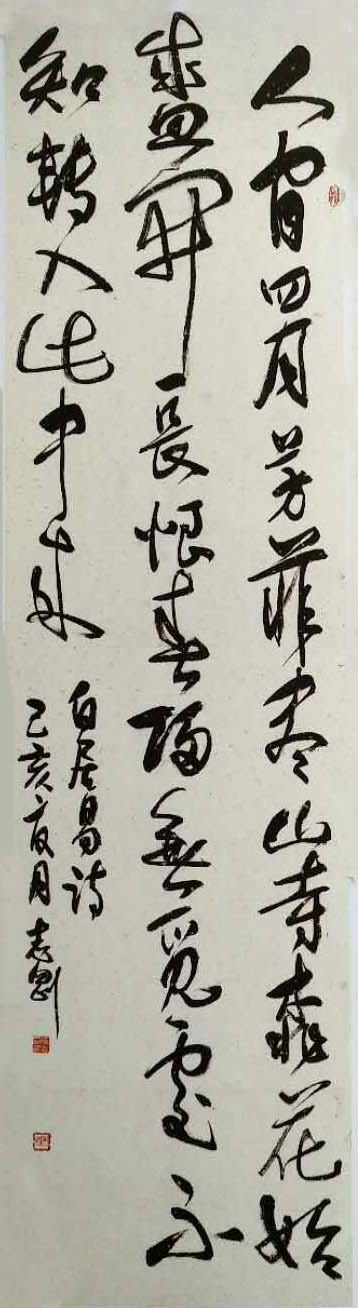 人間四月芳菲盡山寺桃花始
盛開長恨春歸無覓處不
知轉入此中來
白居易詩
己亥夏月志剛